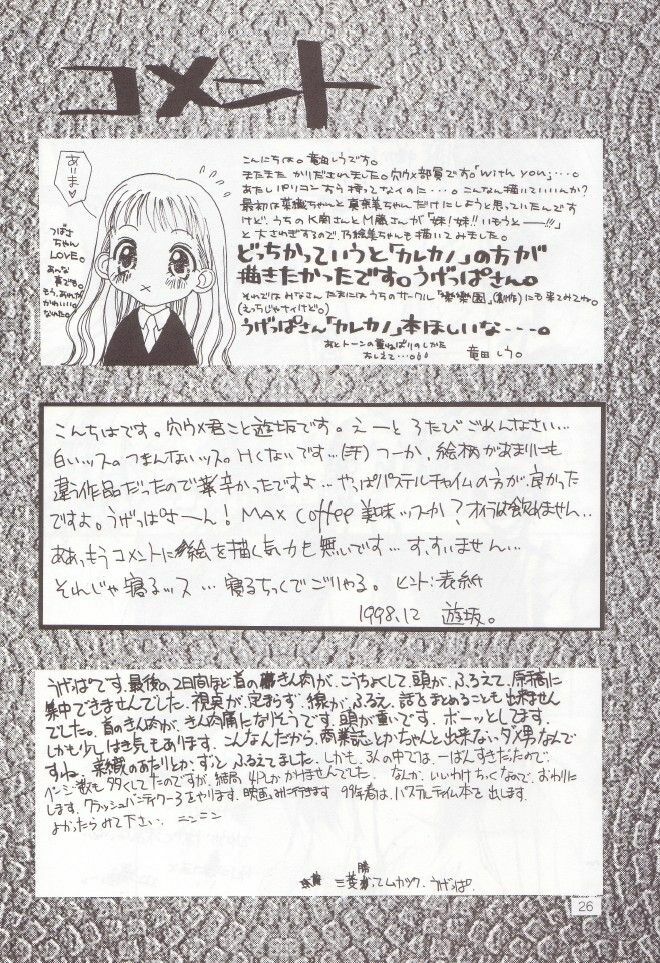 コメント
あいま♡
つばさ
ちゃん
LOVE。
あんな
かわいい
こんにちは。竜田しうです。
またまた かりだされました。穴ウメ部員です。「with you」…。
あたしパソコンすら持ってないのに…。こんなん描いていいんか?
最初は菜織ちゃんと真奈美ちゃんだけにしようと思っていたんです
けど、うちのK南さんとM蔵さんが「妹!妹!!いもうとー!!!」
と大さわぎするので、乃絵美ちゃんも描いてみました。
どっちかっていうと「カレカノ」の方が
描きたかったです。うげっぱさん。
それではみなさん たまにはうちのサークル「楽園」(創作)にも来てみてね。
(えっちじゃナイけど。)
うげっぱさん「カレカノ」本ほしいな---。
あとトーンの重ねばりのしかた
おしえて…。。。
竜田しう。
こんちはです。穴ウメ君こと遊坂です。えーと ろたびごめんなさい…
白いッス。つまんないッス。Hくないです…(汗) つーか、絵柄があまりにも
違う作品だったので辛かったですよ…やっぱパステルチャイムの方が良かった
ですよ。うげっぱさーん! MAX Coffee 美味ッスか?オイラは飲めません…
ああっもうコメントに絵を描く気力も無いです…す、すいません…
そんじゃ寝るッス…寝るちっくでごりゃる。 ヒント:表紙
1998.12 遊坂。
うげっぱです。最後の2日間ほど首のきん肉が、こうちょくして、頭が、ふるえて、原稿に
集中できませんでした。視点が定まらず、線が、ふるえ、話をまとめることも出来ません
でした。首のきん肉が、きん肉痛になりそうです。頭が重いです。ボーッとしてます。
しかも少しはき気もあります。こんなんだから、商業誌とかちゃんと出来ないダメ男なんで
すね。菜織のあたりとか、ずっとふるえてました。しかも、3人の中では、一ばんすきだったので、
ページ数も多くしてたのですが、結局、4Pしかかけませんでした。なんか、いいわけちっくなので、おわりに
します。クラッシュバンディクー3をやります。映画みに行きます。99年春は、パステルチャイム本を出します。
よかったらみて下さい。ニンニン
三菱 勝ってムカツク。うげっぱ。
26